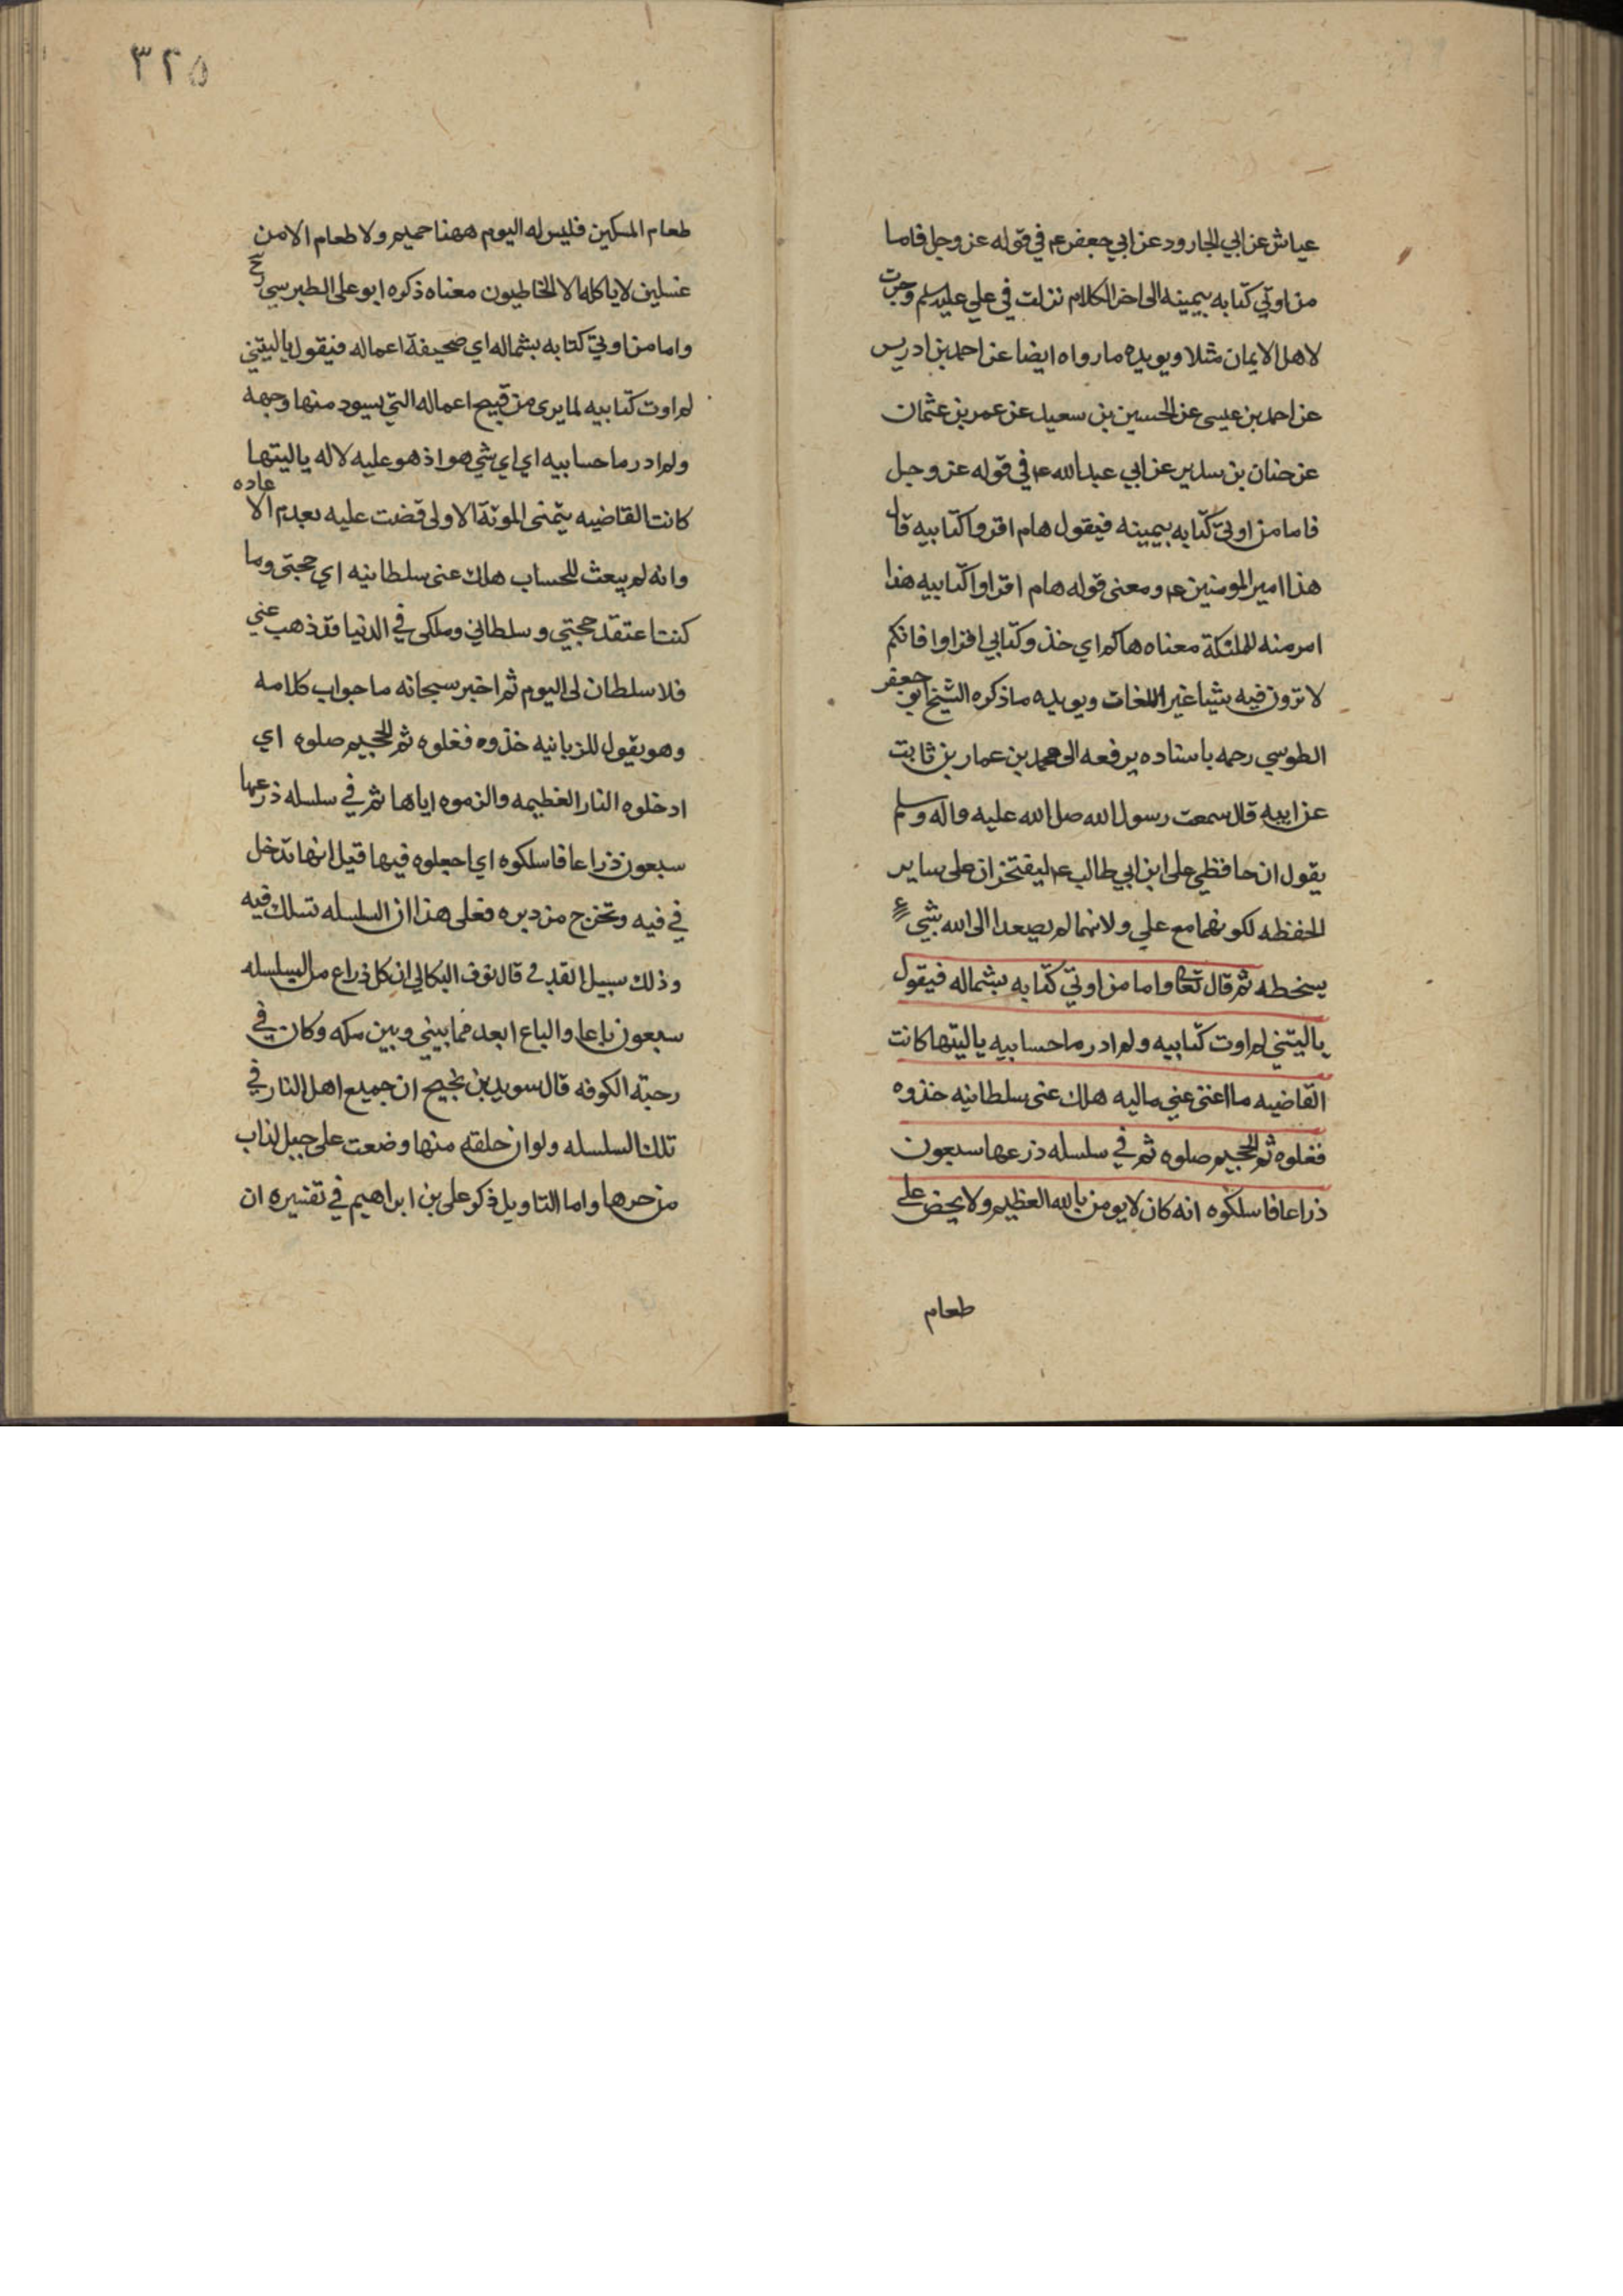 عياش عن ابي الجارود عن ابي جعفر ع م في قوله عز وجل فاما
من اوتي كتابه بيمينه الى اخر الكلام نزلت في علي عليه سلم وجرت
لاهل الايمان مثلا ويويده ما رواه ايضا عن احمد بن ادريس
عن احمد بن عيسى عن الحسين بن سعيد عن عمر بن عثمان
عن حنان بن سدير عن ابي عبد الله ع م في قوله عز وجل
فاما من اوتي كتابه بيمينه فيقول هام اقروا كتابيه قال
هذا امير المومنين ع م ومعنى قوله هام اقراوا كتابيه هذا
امر منه للملئكة معناه هاكم اي خذ وكتابي اقراوا فانكم
لا ترون فيه شيئا غير اللغات ويويده ما ذكره الشيخ ابو جعفر
الطوسي رحمه باسناده يرفعه الى محمد بن عمار بن ثابت
عن ابيه قال سمعت رسول الله صل الله عليه واله وسلم
يقول ان حافظي علي ابن ابي طالب ع م ليفتخران على ساير
الحفظه لكونهما مع علي ولانهما لم يصعدا الى الله بشيء
يسخطه ثم قال تعا واما من اوتي كتابه بشماله فيقول
ياليتني لم اوت كتابيه ولم ادر ما حسابيه ياليتها كانت
القاضيه ما اغنى عني ماليه هلك عنى سلطانيه خذوه
فغلوه ثم الجحيم صلوه ثم في سلسله ذرعها سبعون
ذراعا فاسلكوه انه كان لا يومن بالله العظيم ولا يحض على
طعام
٣٢٥
طعام المسكين فليس له اليوم ههنا حميم ولا طعام الا من
غسلين لا ياكله الا الخاطيون معناه ذكره ابو على الطبرسي رح
واما من اوتي كتابه بشماله اي صحيفة اعماله فيقول ياليتني
لم اوت كتابيه لما يرى من قبيح اعماله التي يسود منها وجهه
ولم ادر ما حسابيه اي اي شي هو اذ هو عليه لا له ياليتها
كانت القاضيه يتمنى الموتة الاولى قضت عليه بعدم الا عاده
وانه لم يبعث للحساب هلك عنى سلطانيه اي حجتى وما
كنت اعتقد حجتي وسلطاني وملكى في الدنيا قد ذهب عني
فلا سلطان لى اليوم ثم اخبر سبحانه ما جواب كلامه
وهو يقول للزبانيه خذوه فغلوه ثم الجحيم صلوه اي
ادخلوه النار العظيمه والزموه اياها ثم في سلسله ذرعها
سبعون ذراعا فاسلكوه اي اجعلوه فيها قيل انها تدخل
في فيه وتخرج من دبره فعلى هذا ان السلسله تسلك فيه
وذلك سبيل القد قال نوف البكالي ان كل ذراع من السلسله
سبعون باعا والباع ابعد مما بيني وبين مكه وكان في
رحبة الكوفه قال سويد بن نجيح ان جميع اهل النار في
تلك السلسله ولو ان حلقه منها وضعت على جبل لذاب
من حرها واما التاويل ذكر على بن ابراهيم في تفسيره ان